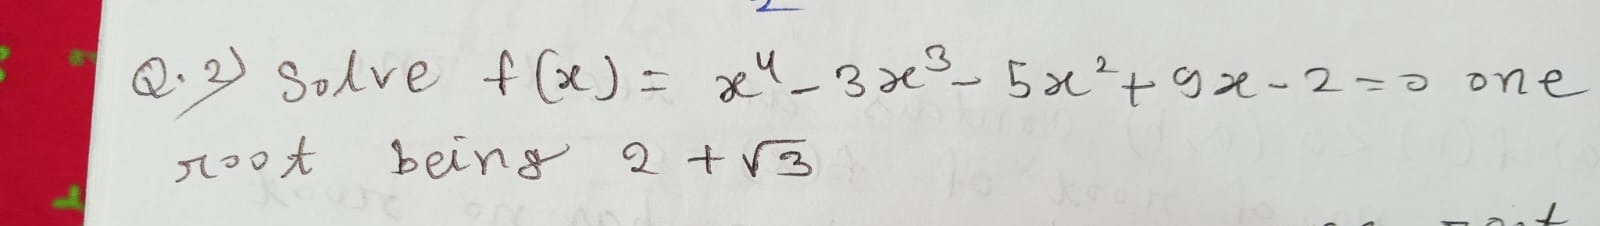 Q.2) Solve f(x) = x⁴ - 3x³ - 5x² + 9x - 2 = 0 one
root being 2 + √3